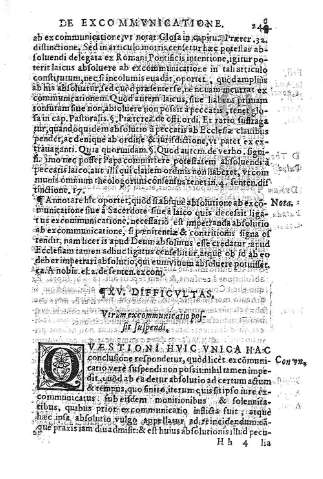 DE EXCOMMVNICATIONE. 244
ab excommunicatione, vt notat Glosa in capitu. Præter. 32.
distinctione. Sed in articulo mortis censetur hæc potestas ab-
soluendi delegata ex Romani Pontificis intentione, igitur pote-
rit laicus absoluere ab excommunicatione in tali articulo
constitutum, nec
ab his absoluatur, sed quod præsente se, ne tatum incurrat ex
communicationem. Quod autem laicus, siue habeat primam
tonsuram siue non, absoluere non possit a peccatis, tenet glo-
sa in cap. Pastoralis. § Præterea de offi. ordi. Et ratio suffraga
tur, quandoquidem absolutio à peccatis ab Ecclesiæ clauibus
pendet, ac denique ab ordine & iurisdictione, vt patet ex ex-
trauaganti. Quia quorundam § Quod autem. de verbo. signifi-
fi. imo nec posset Papa committere potestatem absoluendi à
peccatis laico, aut illi qui clalem ordinis non haberet, vt com
munis omnium theologorum consensus tenet in. 4. senten. dist
tinctione. 17.
¶ Annotare hîc oportet, quòd is absque absolutione ab exco- Nota.
municatione siue à Sacerdote siue à laico quis decessit liga-
tus excommunicatione, necessario est impetranda absolutio
ab excommunicatione, si pœnitentiæ & contritionis signa os
tendit, nam licet is apud Deum absolutus esse credatur apud
Ecclesiam tamen adhuc ligatus censebitur, atque ob id ab eo
debet imperari absolutio, qui cum viuum absoluere potuisset.
ca. A nobis. el. 2. de senten. excom.
XV. DIFFICVLTAS,
Vtrum excommunicatio pos-
sit suspendi.
QVÆSTIONI HVIC VNICA HAC
conclusione respondetur, quòd licet excommuni Con vn.
catio verè suspendi non possit: nihil tamen impe-
dit, quòd ab ea detur absolutio ad certum assum
& tempus, quo finito, iterum quis sit ipso iure ex
communicatus sub eisdem monitionibus & solennita-
tibus, quibus prior excommunicatio iniicta fuit; atque
hæc ipsa absolutio vulgo appellatur ad reincidendum ea-
que praxis iam diu admissa: & est huius absolutionis illud recu-
H h 4 lia